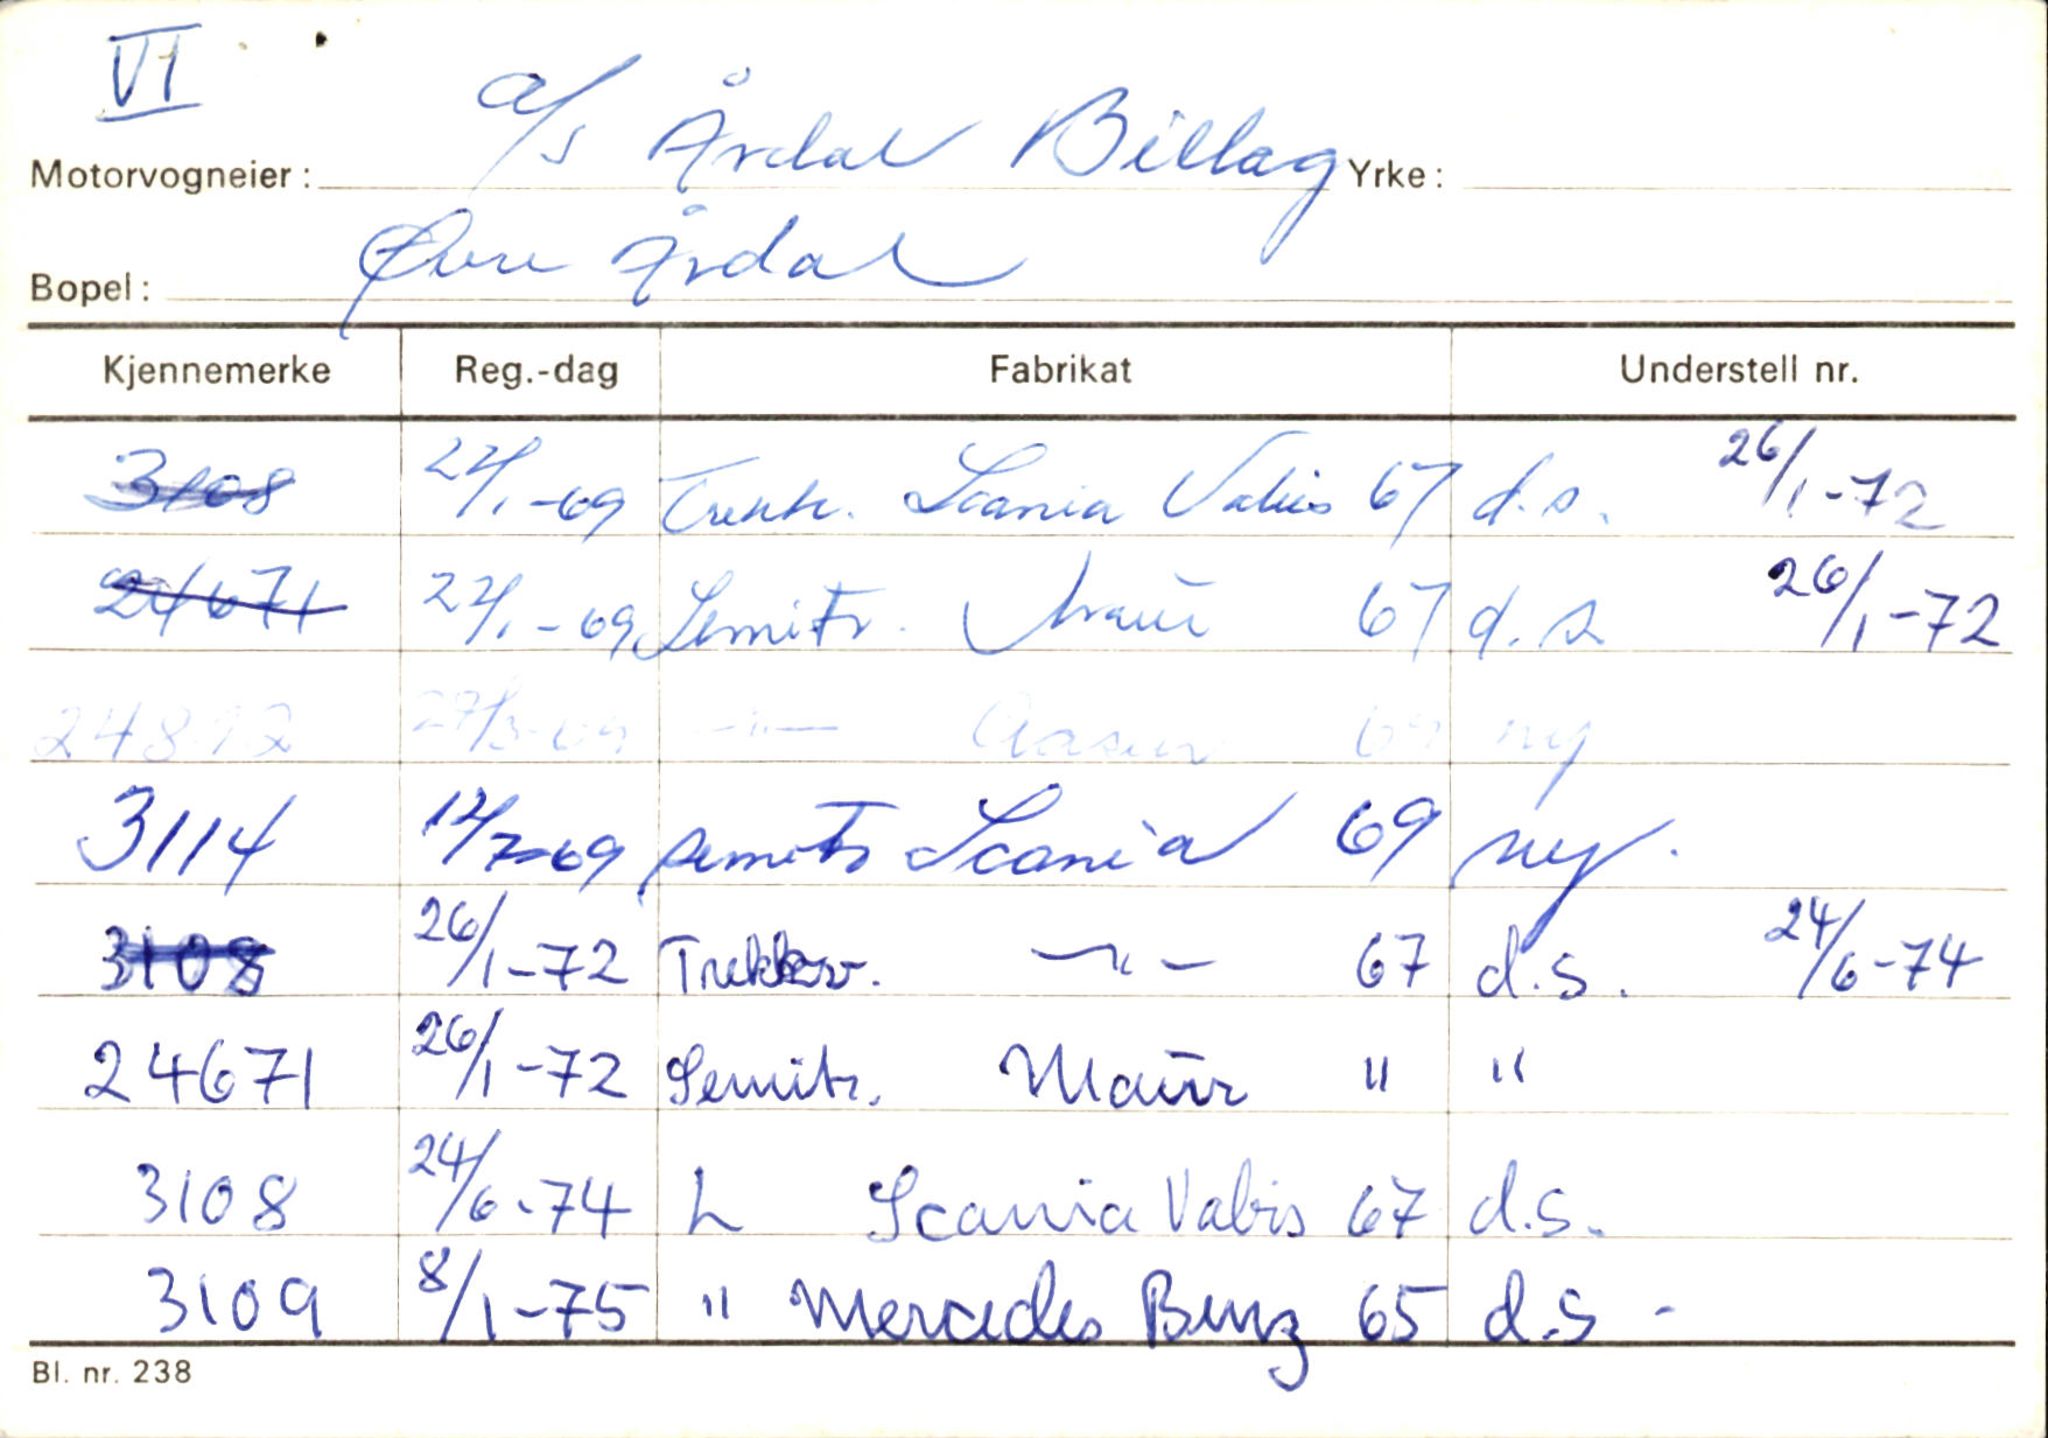 VI
Motorvogneier: a/s Årdal Billag Yrke:
Bopel: Øvre Årdal
Kjennemerke Reg.-dag Fabrikat Understell nr.
3108 22/1-69 Trekk. Scania Vabis 67 d.s. 26/1-72
24671 22/1-69 Semitr. Maur 67 d.s 26/1-72
24812 -"- 69 ny
3114 12/7-69 semitr Scania 69 ny.
3108 26/1-72 Trekkv. -"- 67 d.s. 24/6-74
24671 26/1-72 Semitr. Maur " "
3108 24/6-74 L Scania Vabis 67 d.s.
3109 8/1-75 " Mercedes Benz 65 d.s -
Bl. nr. 238